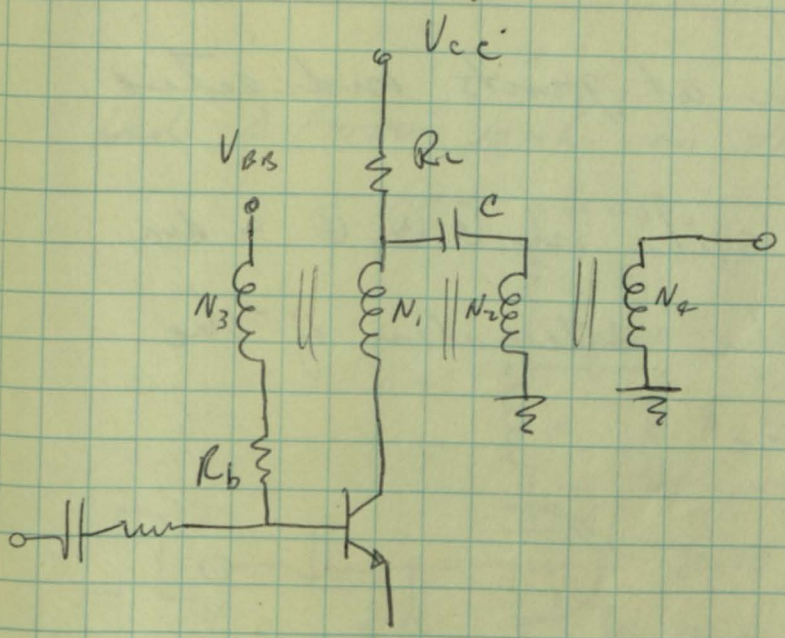 Vcc
VBB
RL
C
N3
N1
N2
N4
Rb